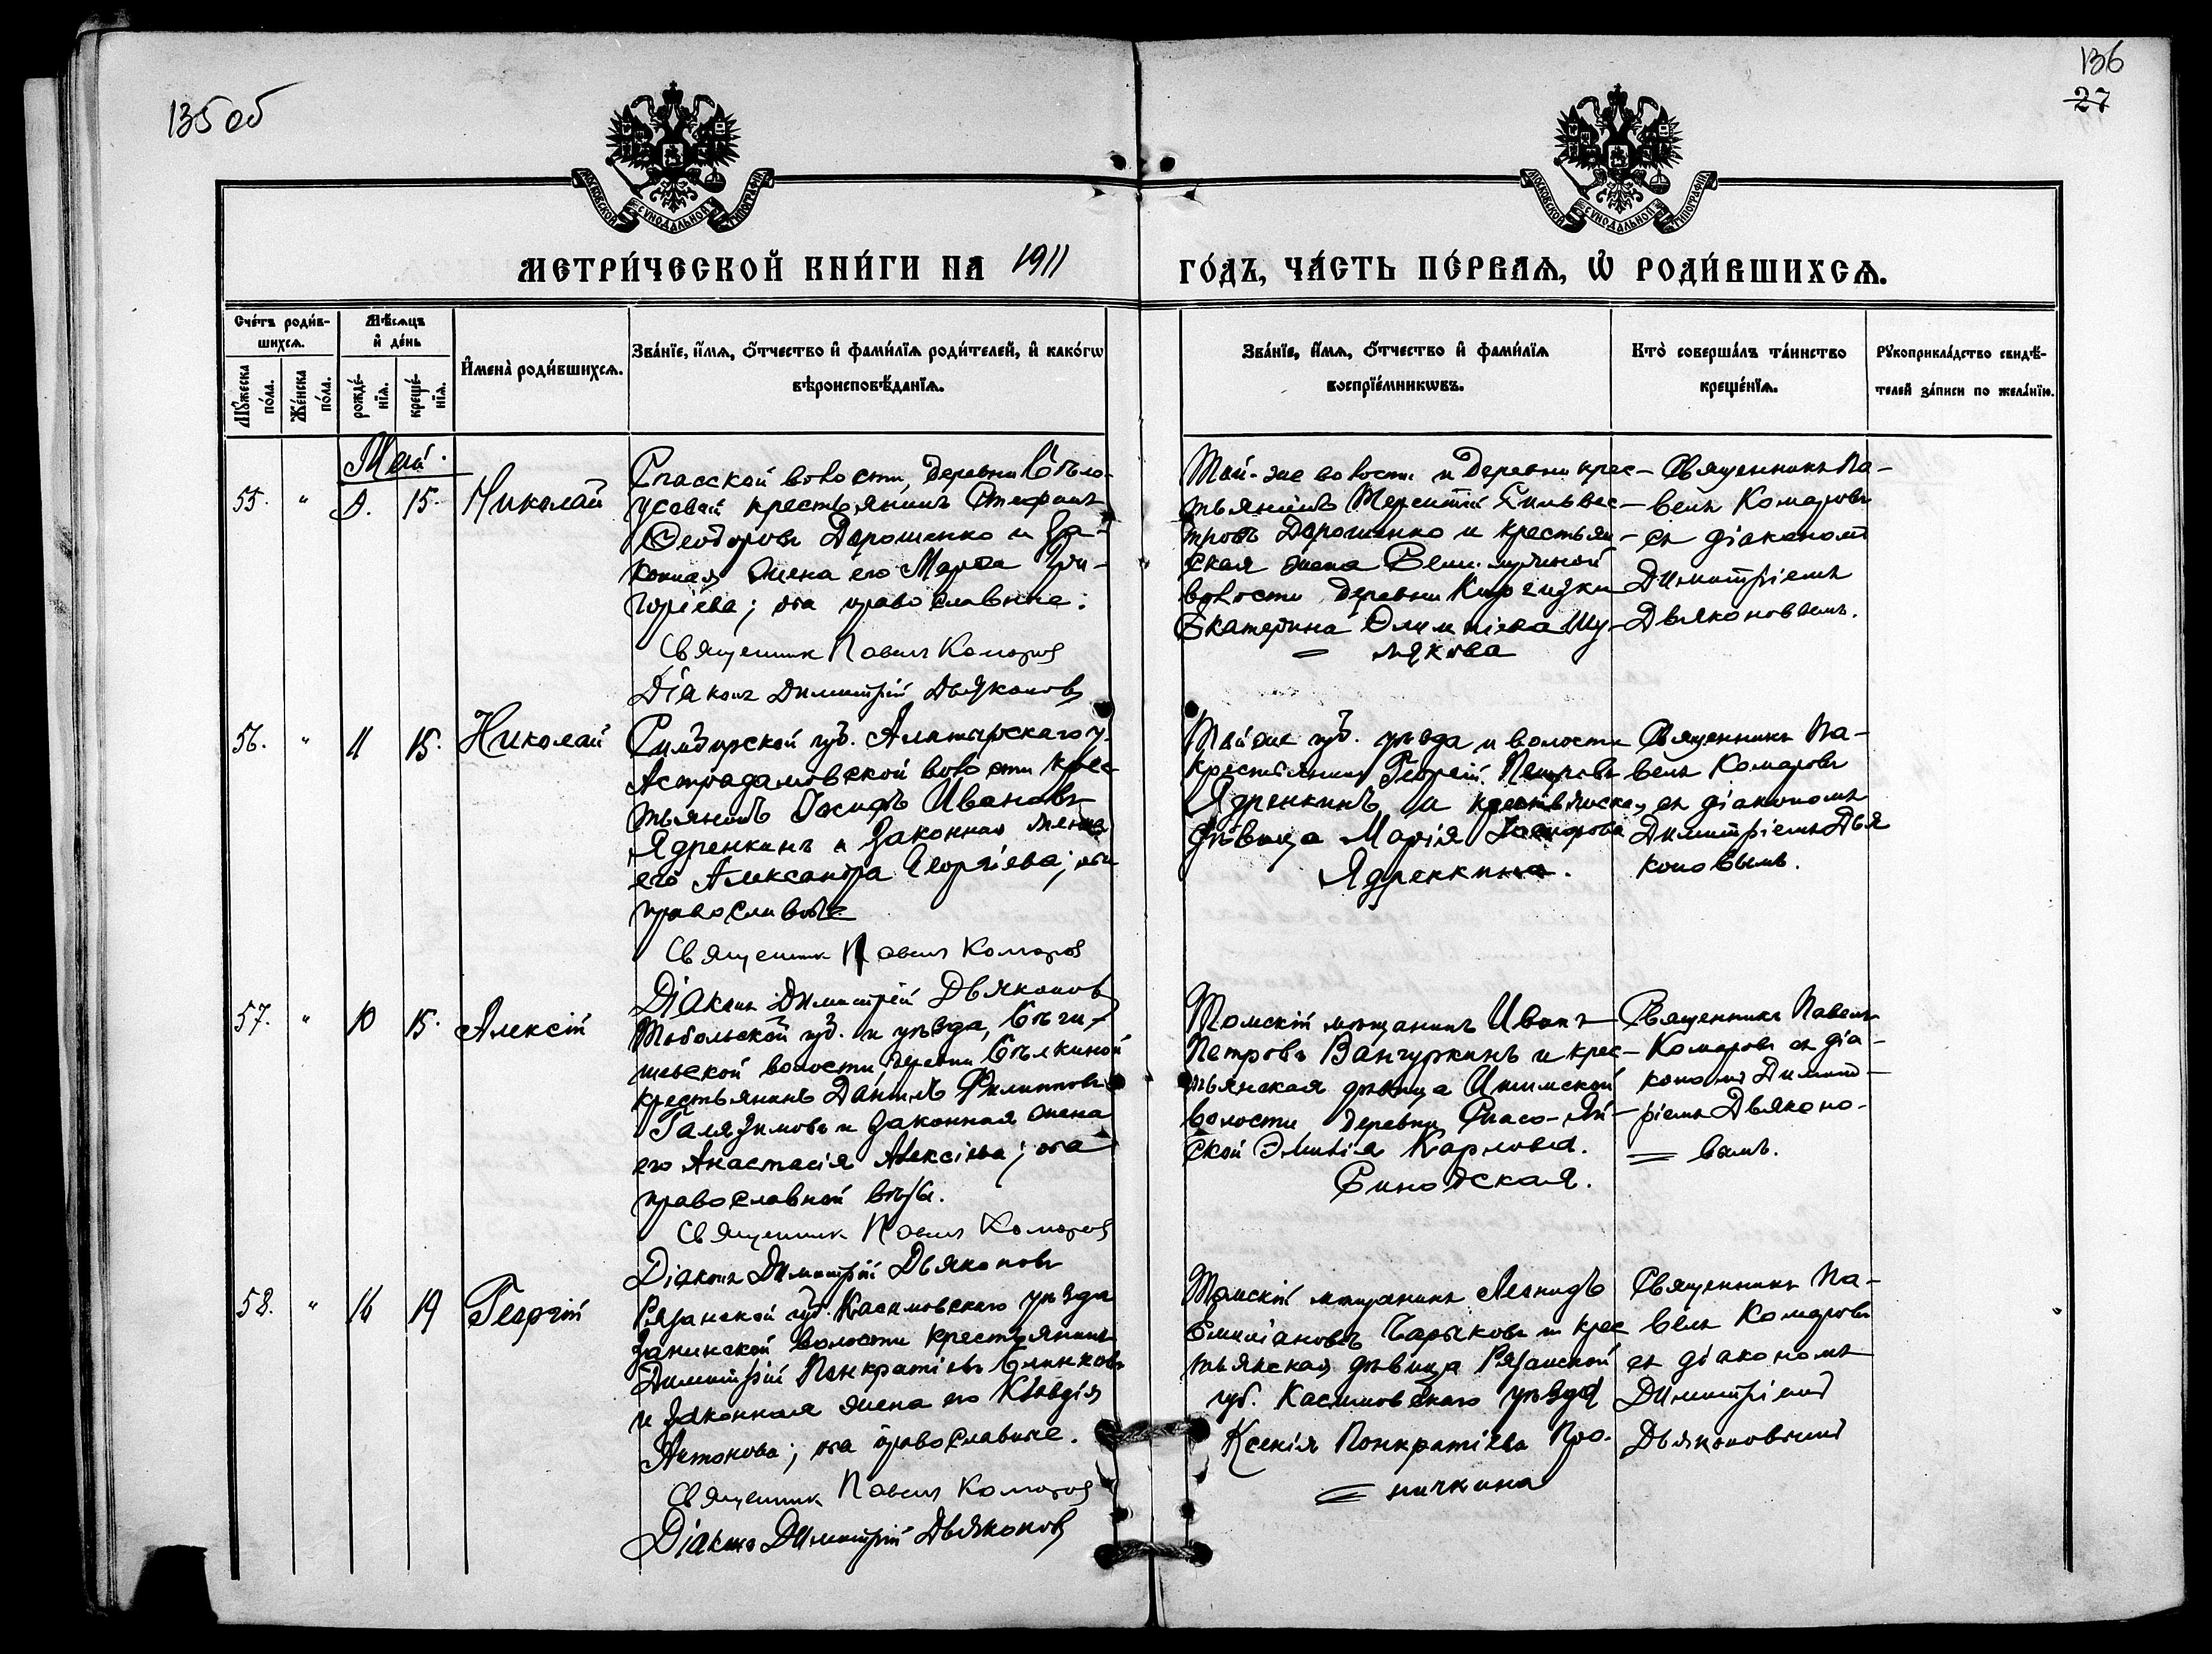 135 об
136
27
МОСКОВСКОЙ СУНОДАЛЬНОЙ ТИПОГРАФІИ
МОСКОВСКОЙ СУНОДАЛЬНОЙ ТИПОГРАФІИ
МЕТРИ́ЧЕСКОЙ КНИ́ГИ НА 1911
ГО́ДЪ, ЧА́СТЬ ПЕ́РВАѦ, Ѡ҆ РОДИ́ВШИХСѦ.
Сче́тъ роди́в-
шихсѧ.
Мѣ́сѧцъ
и҆ де́нь
Мꙋ́жеска
по́ла.
Же́нска
по́ла.
рожде́-
нїѧ.
креще́-
нїѧ.
И҆мена̀ роди́вшихсѧ.
Зва́нїе, и҆́мѧ, ѻ҆́тчество и҆ фами́лїѧ роди́телей, и҆ како́гѡ
вѣроисповѣ́данїѧ.
Зва́нїе, и҆́мѧ, ѻ҆́тчество и҆ фами́лїѧ
воспрїе́мникѡвъ.
Кто̀ соверша́лъ та́инство
креще́нїѧ.
Рꙋкоприкла́дство свидѣ́-
телей за́писи по жела́нїю.
Май.
55. " 9. 15. Николай
Спасской волости, деревни Бѣло-
усовой крестьянинъ Стефанъ
Ѳеодоровъ Дорошенко и за-
конная жена его Марѳа Гри-
горіева; оба православные.
Священник Павелъ Комаров
Діаконъ Димитрій Дьяконовъ
Той-же волости и деревни крес-
тьянинъ Терентій Сильвес-
тровъ Дорошенко и крестьян-
ская жена
волости деревни
Екатерина Олимпіева Шу-
мякова
Священникъ Па-
велъ Комаровъ
съ діакономъ
Димитріемъ
Дьяконовымъ.
56. " 11 15. Николай
Симбирской губ. Алатырскаго у.
Астрадамовской волости крес-
тьянинъ Іосифъ Ивановъ
Ядренкинъ и законная жена
его Александра Георгіева; оба
православные
Священник Павелъ Комаров
Діаконъ Димитрій Дьяконов
Той же губ. уѣзда и волости
крестьянинъ Георгій Петровъ
Ядренкинъ и крестьянская
дѣвица Марія
Ядренкина.
Священникъ Па-
велъ Комаровъ
съ діакономъ
Димитріемъ Дья
коновымъ.
57. " 10 15. Алексій
Тобольской губ. и уѣзда, Бѣги-
шевской волости, деревни Бѣлкиной
крестьянинъ Даніилъ Филипповъ
Галязимовъ и законная жена
его Анастасія Алексіева; оба
православной вѣры.
Священник Павелъ Комаров
Діаконъ Димитрій Дьяконовъ
Томскій мѣщанинъ Иванъ
Петровъ Вангуркинъ и крес-
тьянская дѣвица Ишимской
волости деревни Спасо-Яй-
ской Эмилія Карлова
Синовская.
Священникъ Павелъ
Комаровъ съ діа-
кономъ Димит-
ріемъ Дьяконо-
вымъ.
58. " 16 19 Георгій
Рязанской губ. Касимовскаго уѣзда
Занинской волости крестьянинъ
Димитрій Панкратіевъ Блинковъ
и законная жена его Клавдія
Антонова; оба православные.
Священник Павелъ Комаров
Діаконъ Димитрій Дьяконовъ
Томскій мѣщанинъ Леонидъ
Емиліановъ Барыковъ и крес
тьянская дѣвица Рязанской
губ. Касимовскаго уѣзда
Ксенія Панкратіева Про-
ничкина
Священникъ Па-
велъ Комаровъ
съ діакономъ
Димитріемъ
Дьяконовымъ